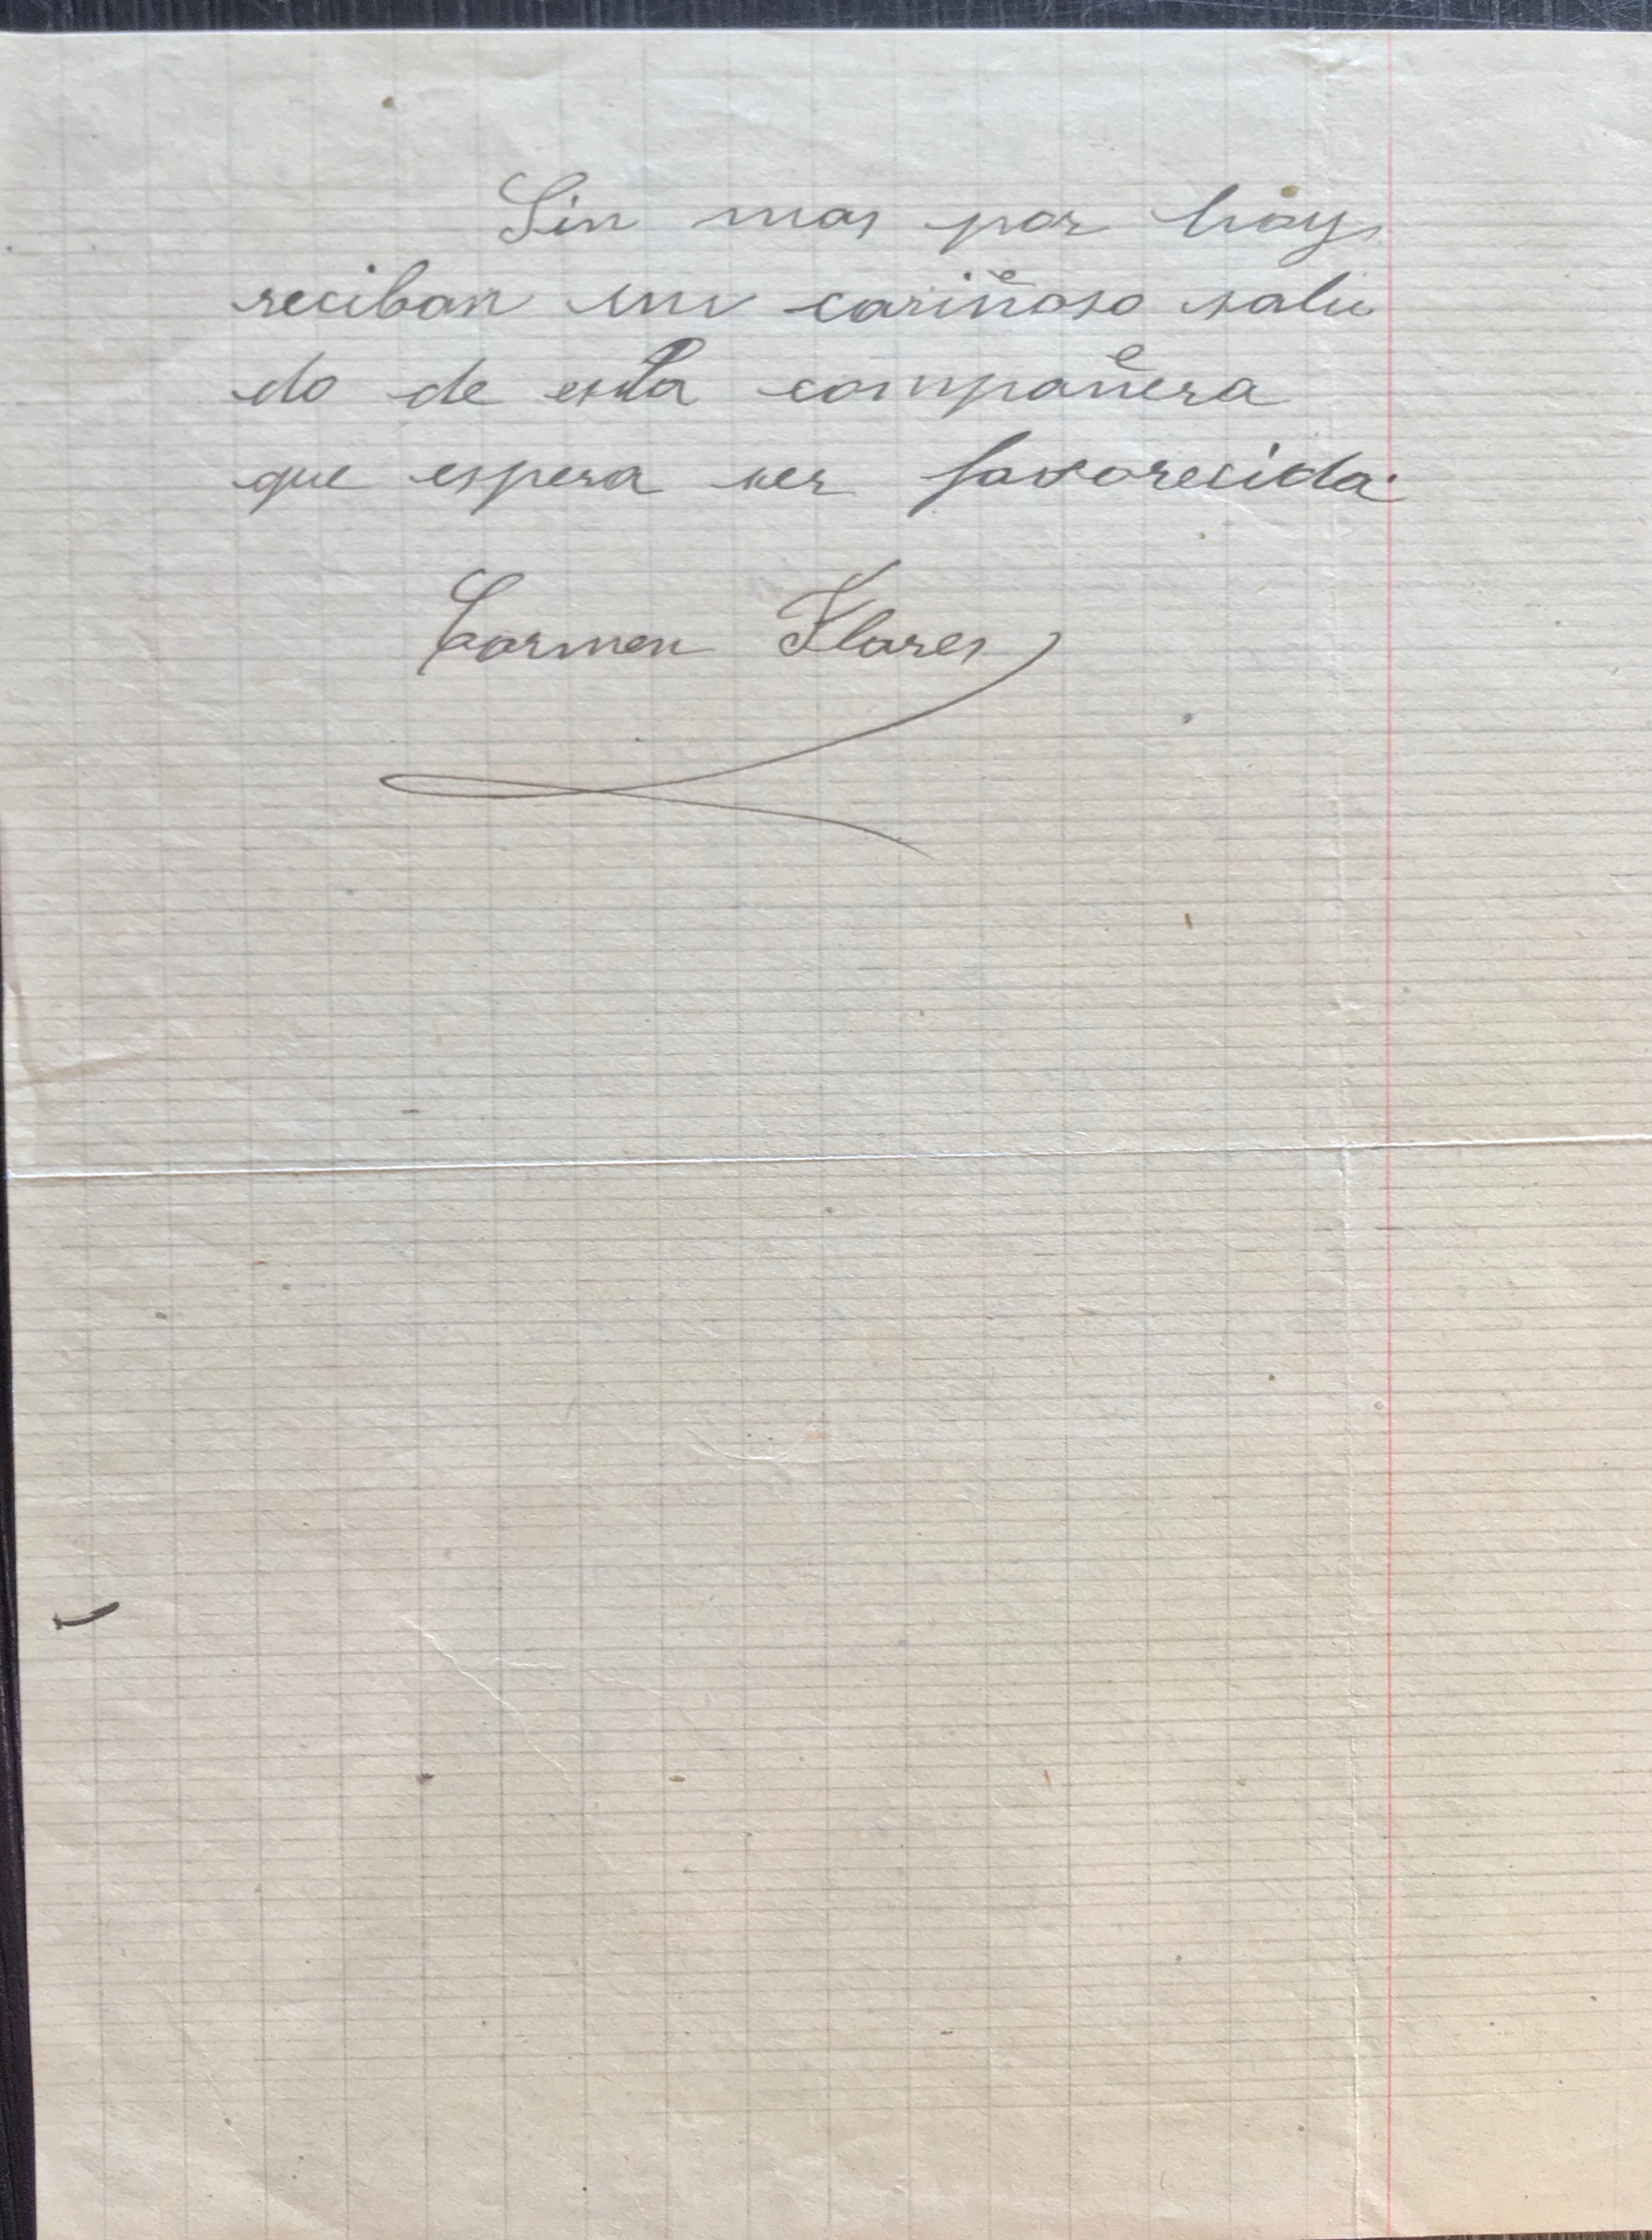 Sin mas por hoy
reciban un cariñoso salu
do de esta compañera
que espera ser favorecida.
Carmen Flores